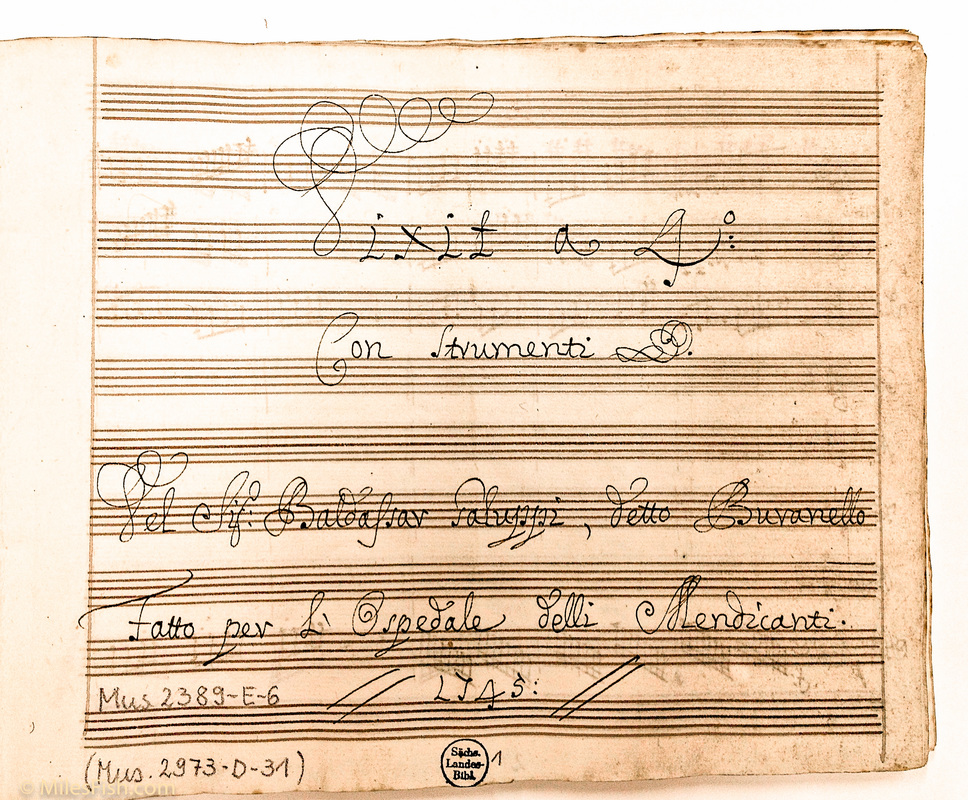 Dixit a 4:º
Con Strumenti
Del Sigr: Baldassar Galuppi, detto Buranello
Fatto per L' Ospedale delli Mendicanti.
1745:
Mus 2389-E-6
(Mus. 2973-D-31)
Sächs.
Landes-
Bibl.
1
© MilesFish.com